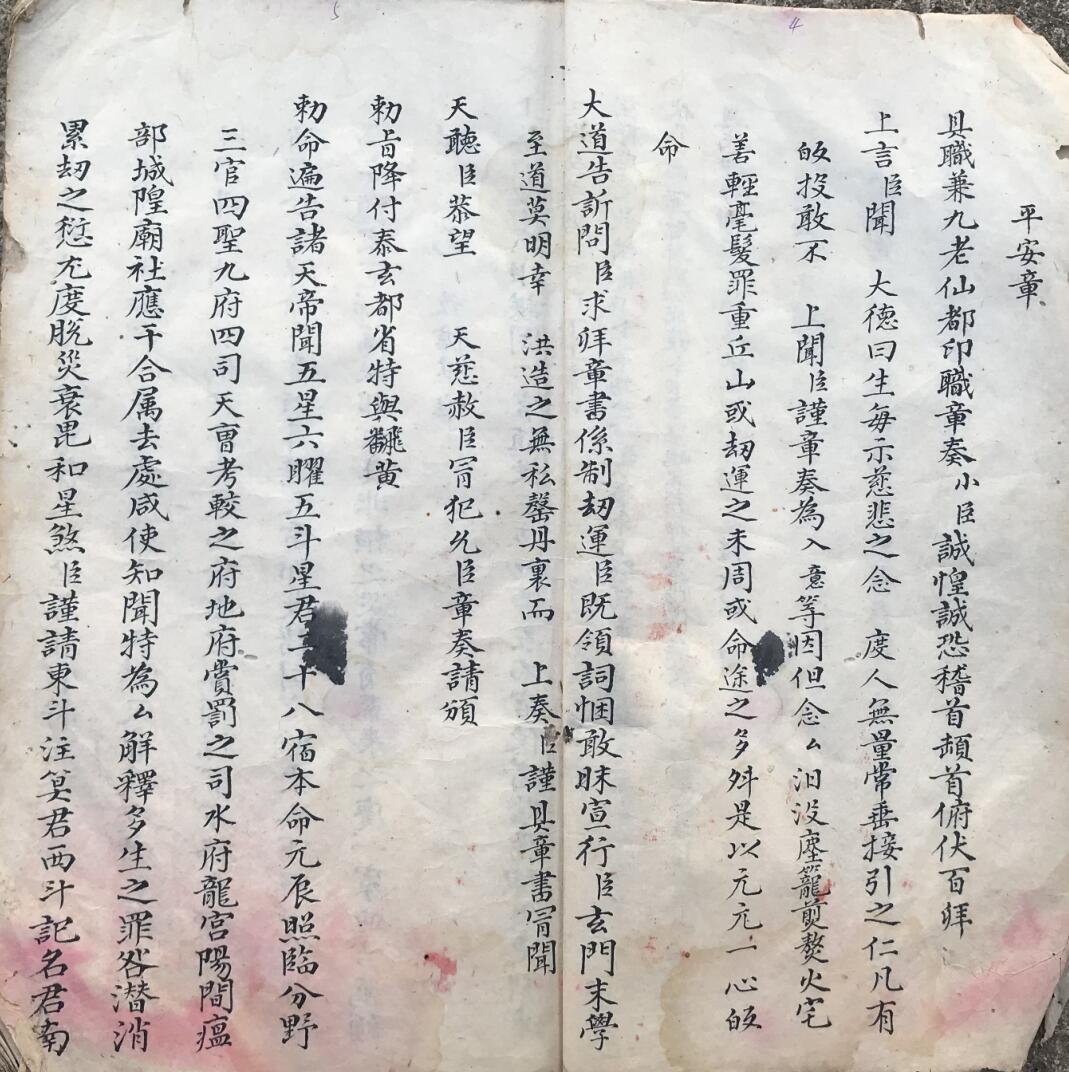 4
平安章
具職兼九老仙都印職章奏小臣誠惶誠恐稽首頓首俯伏百拜
上言臣聞 大德曰生每示慈悲之念 度人無量常垂接引之仁凡有
皈投敢不 上聞臣謹章奏為入意等因但念厶汩沒塵籠煎熬火宅
善輕毫髮罪重丘山或刼運之未周或命途之多舛是以元元一心皈
命
大道告訢問臣求拜章書係制刼運臣既領詞悃敢昧宣行臣玄門末學
至道莫明幸 洪造之無私罄丹裏而 上奏臣謹具章書冐聞
5
天聽臣恭望 天慈赦臣冐犯允臣章奏請頒
勅旨降付泰玄都省特與飜黄
勅命遍告諸天帝聞五星六曜五斗星君二十八宿本命元辰照臨分野
三官四聖九府四司天曹考較之府地府賞罰之司水府龍宮陽間瘟
部城隍廟社應干合属去處咸使知聞特為厶解釋多生之罪咎潜消
累刼之愆尤度脫災衰毘和星煞臣謹請東斗注筭君西斗記名君南